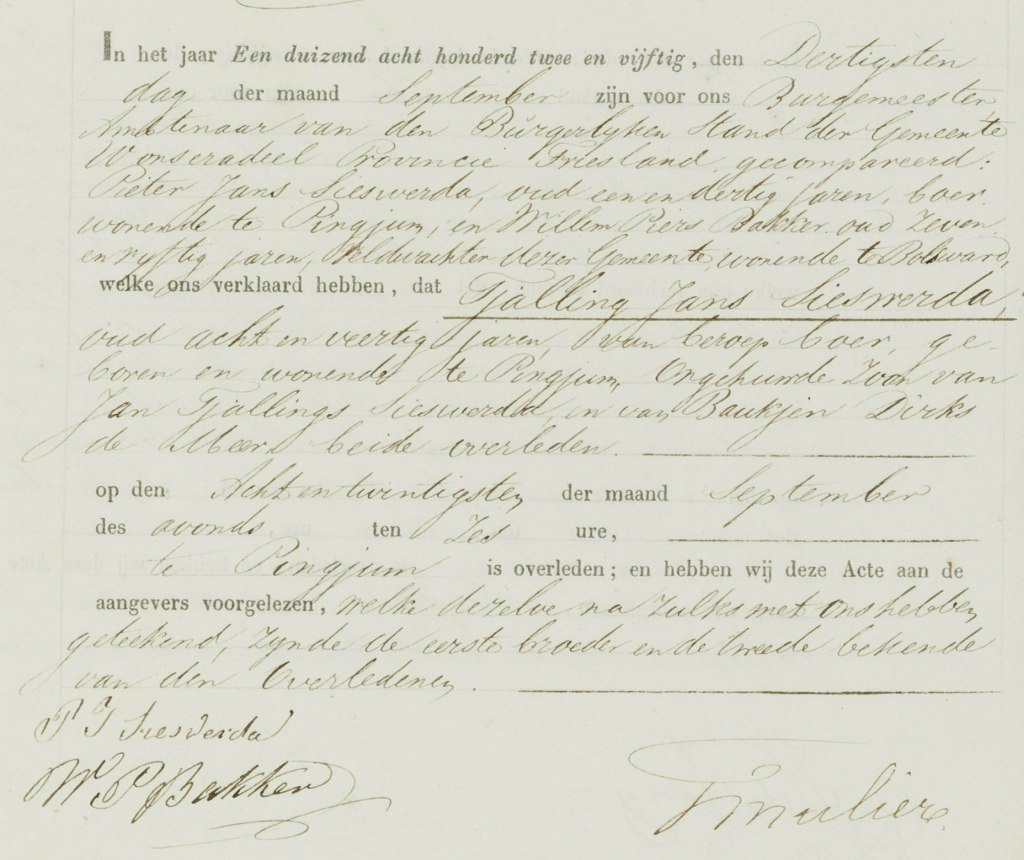 In het jaar Een duizend acht honderd twee en vijftig, den Dertigsten
dag der maand September zijn voor ons Burgemeester
Ambtenaar van den Burgerlyken Stand der Gemeente
Wonseradeel Provincie Friesland, gecompareerd:
Pieter Jans Sieswerda, oud een en dertig jaren, boer
wonende te Pingjum, en Willem Piers Bakker oud Zeven
en vyftig jaren, Veldwachter dezer Gemeente, wonende te Bolsward,
welke ons verklaard hebben, dat Tjalling Jans Sieswerda,
oud acht en veertig jaren, van beroep boer, ge-
boren en wonende te Pingjum, Ongehuwde Zoon van
Jan Tjallings Sieswerda, en van Baukjen Dirks
de Meer, beide overleden.
op den Acht en twintigsten der maand September
des avonds ten Zes ure,
te Pingjum is overleden; en hebben wij deze Acte aan de
aangevers voorgelezen, welke dezelve na zulks met ons hebben
geteekend, zynde de eerste broeder en de tweede bekende
van den Overledenen.
P J Sieswerda
W P Bakker